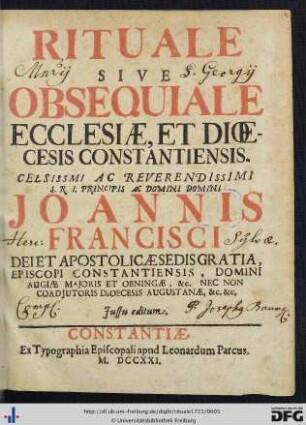 RITUALE
SIVE
Marij S. Georgij
OBSEQUIALE
ECCLESIÆ, ET DIŒ-
CESIS CONSTANTIENSIS.
CELSISSMI AC REVERENDISSIMI
S. R. I. PRINCIPIS AC DOMINI DOMINI
JOANNIS
FRANCISCI
DEI ET APOSTOLICÆ SEDIS GRATIA,
EPISCOPI CONSTANTIENSIS, DOMINI
AUGIÆ MAJORIS ET OENINGÆ, &c. NEC NON
COADJUTORIS DIOECESIS AUGUSTANÆ, &c. &c.
Jussu editum.
P. Josephg
CONSTANTIÆ,
Ex Typographia Episcopali apud Leonardum Parcus.
M. DCCXXI.
http://dl.ub.uni-freiburg.de/diglit/rituale1721/0005
© Universitätsbibliothek Freiburg
gefördert durch die
DFG